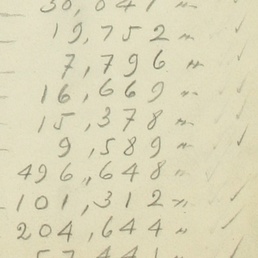 30,041 "
19,752 "
7,796 "
16,669 "
15,378 "
9,589 "
496,648 "
101,312 "
204,644 "